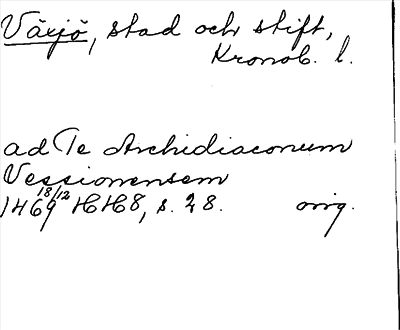 Växjö, stad och stift,
Kronob. l.
ad Te Archidiaconum
Vessionensem
1469 18/12 HH8, s. 28. orig.